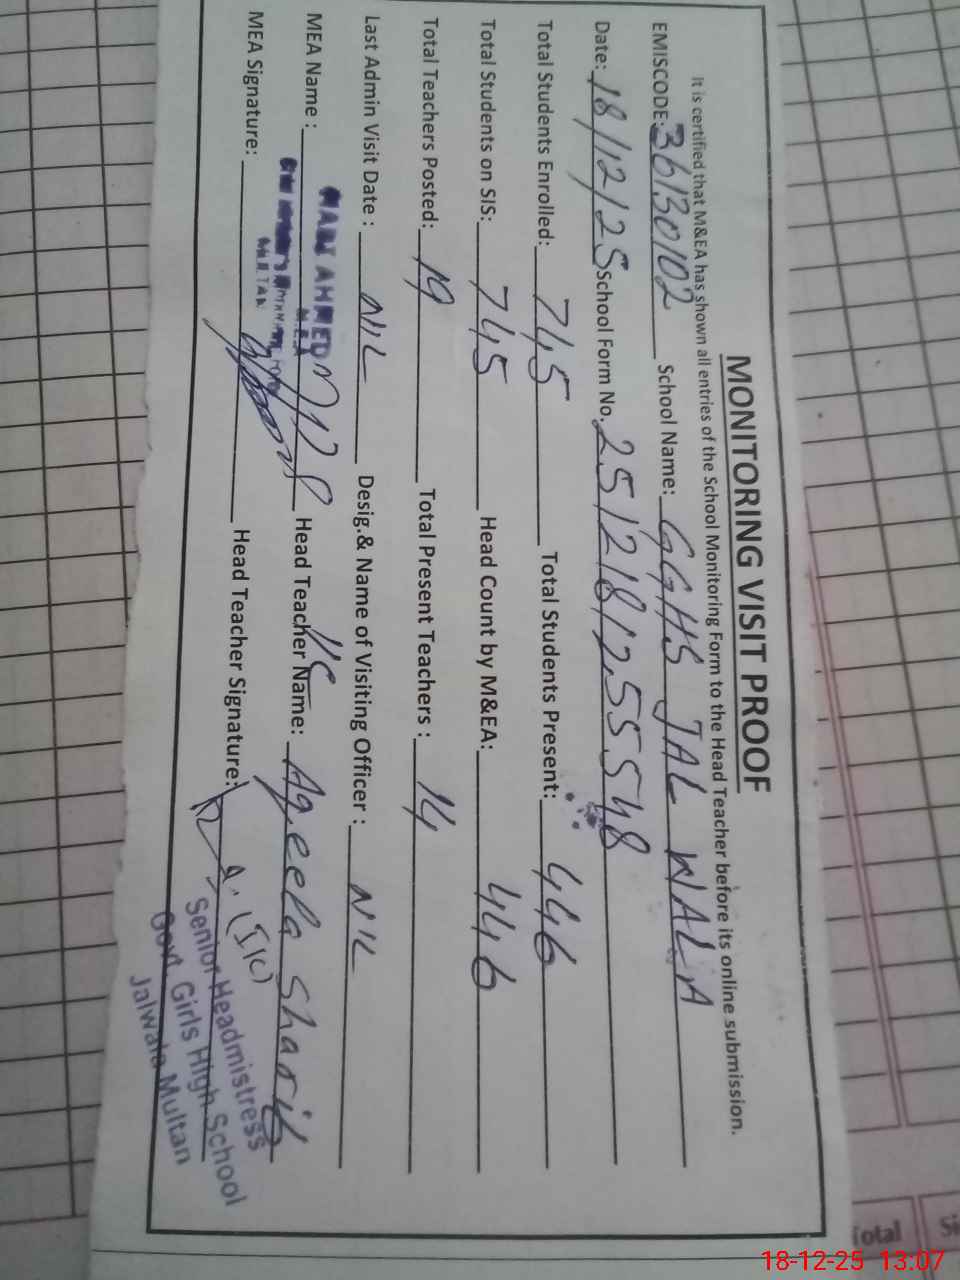 MONITORING VISIT PROOF
It is certified that M&EA has shown all entries of the School Monitoring Form to the Head Teacher before its online submission.
EMISCODE: 36130102 School Name: GGHS JAL WALA
Date: 18/12/25 School Form No. 251218125548
Total Students Enrolled: 745 Total Students Present: 446
Total Students on SIS: 745 Head Count by M&EA: 446
Total Teachers Posted: 19 Total Present Teachers : 14
Last Admin Visit Date : NIL Desig.& Name of Visiting Officer : NIL
MEA Name : AHMED Head Teacher Name: Aqeela Sharif
M.E.A
MULTAN
MEA Signature: Head Teacher Signature:
(I/C)
Senior Headmistress
Govt. Girls High School
Jalwala Multan
Total
18-12-25 13:07